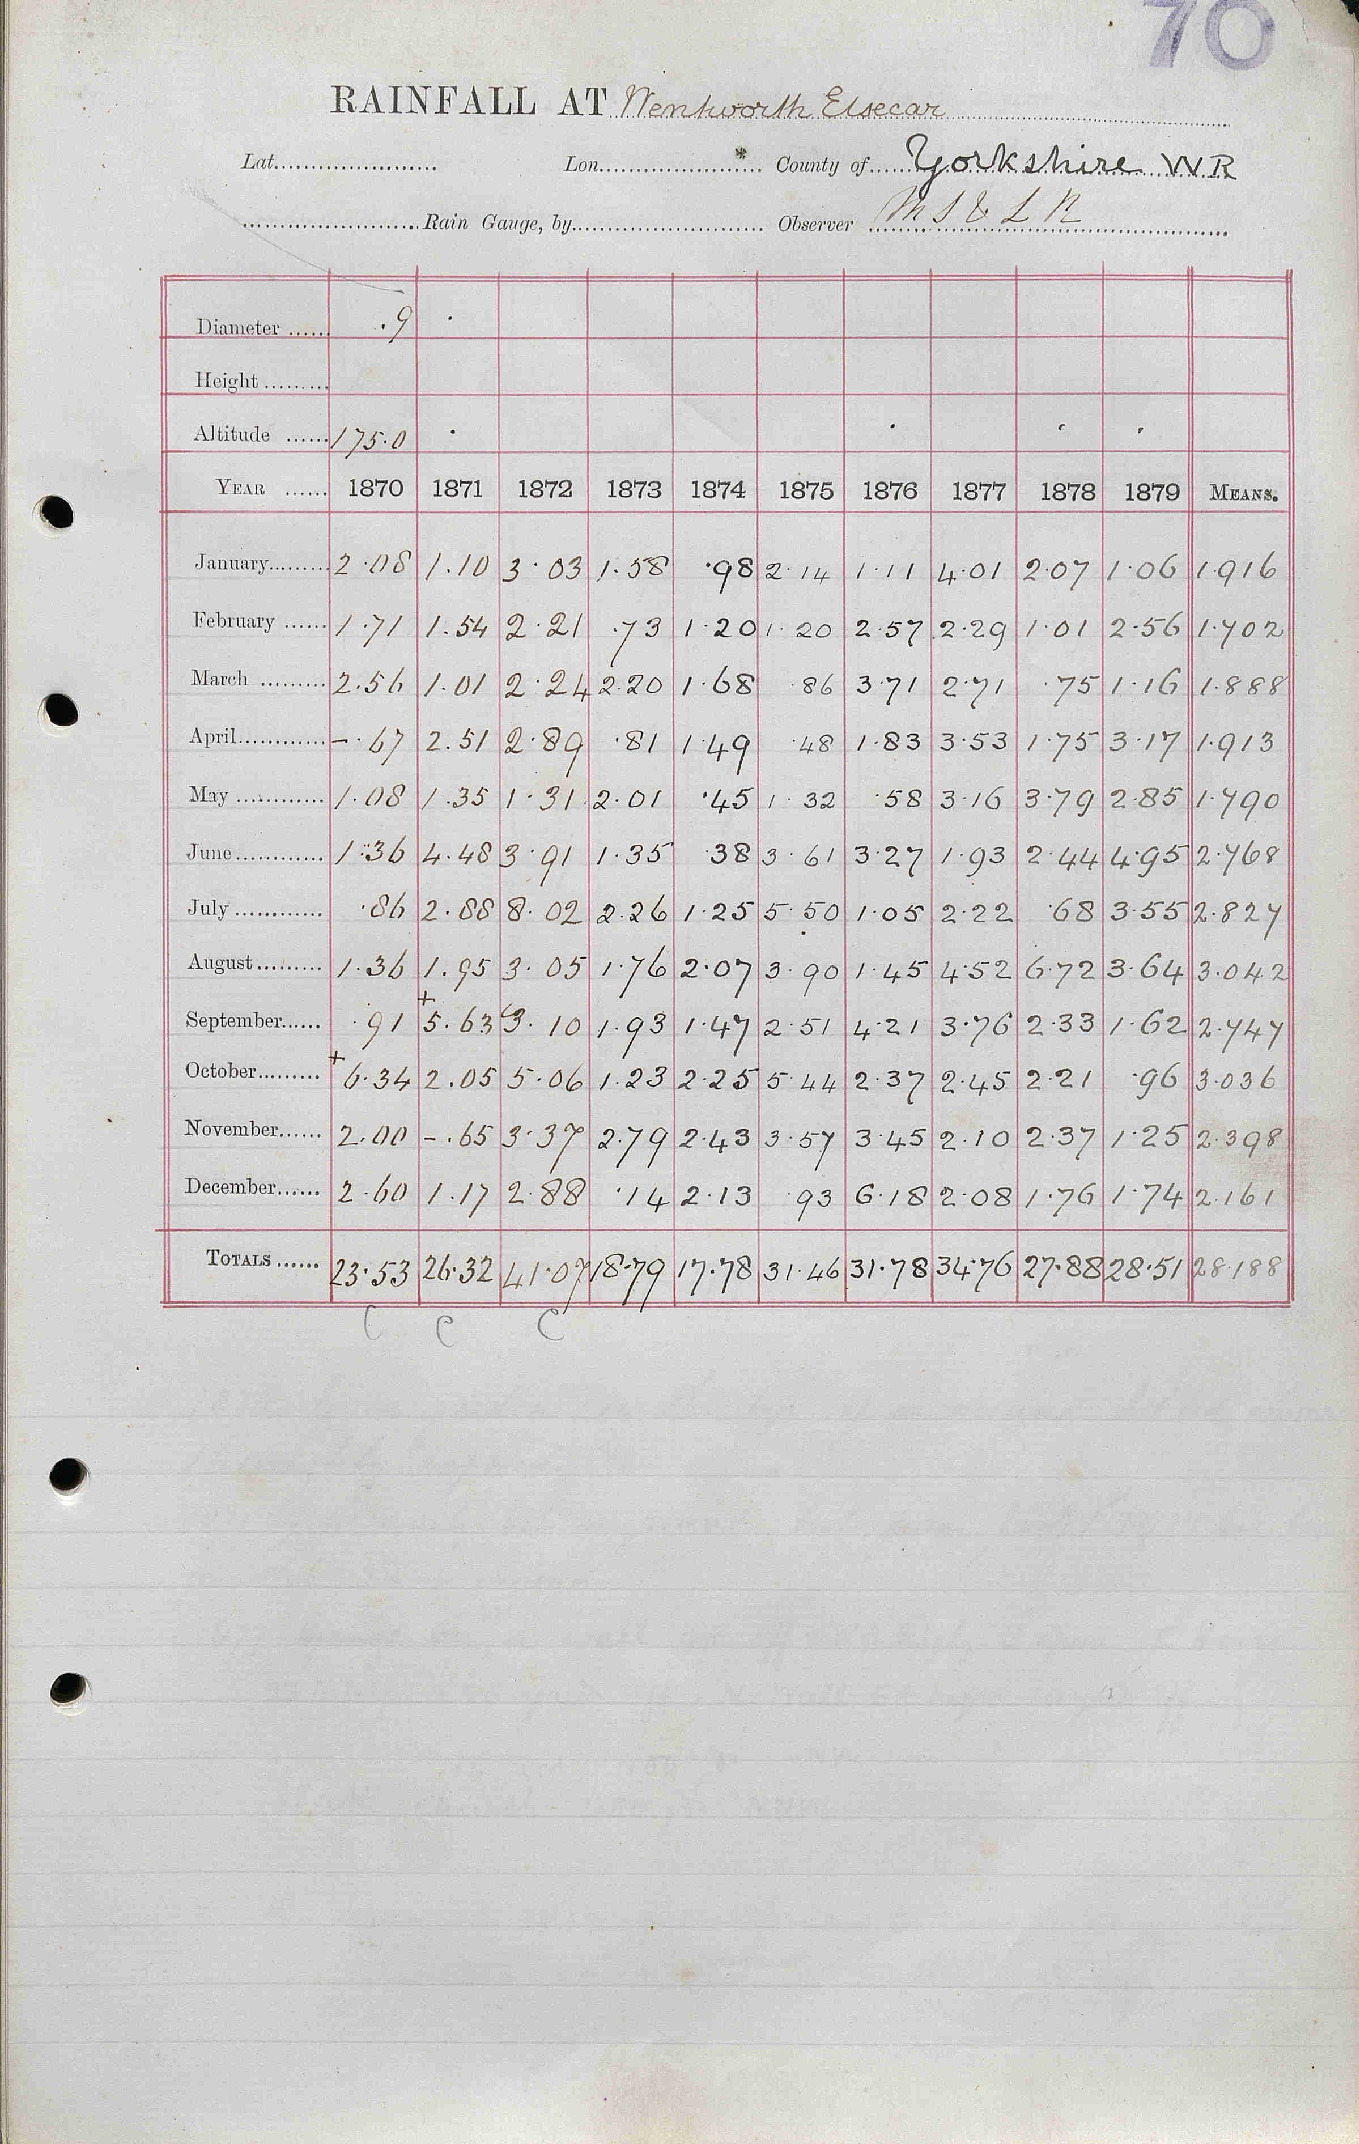 70
RAINFALL AT Wentworth Elsecar
Lat. Lon. County of Yorkshire WR
Rain Gauge, by Observer M S & L R
Diameter .9
Height
Altitude 175.0
YEAR 1870 1871 1872 1873 1874 1875 1876 1877 1878 1879 MEANS.
January 2.08 1.10 3.03 1.58 .98 2.14 1.11 4.01 2.07 1.06 1.916
February 1.71 1.54 2.21 .73 1.20 1.20 2.57 2.29 1.01 2.56 1.702
March 2.56 1.01 2.24 2.20 1.68 .86 3.71 2.71 .75 1.16 1.888
April -.67 2.51 2.89 .81 1.49 .48 1.83 3.53 1.75 3.17 1.913
May 1.08 1.35 1.31 2.01 .45 1.32 .58 3.16 3.79 2.85 1.790
June 1.36 4.48 3.91 1.35 .38 3.61 3.27 1.93 2.44 4.95 2.768
July .86 2.88 8.02 2.26 1.25 5.50 1.05 2.22 .68 3.55 2.827
August 1.36 1.95 3.05 1.76 2.07 3.90 1.45 4.52 6.72 3.64 3.042
September .91 +5.63 3.10 1.93 1.47 2.51 4.21 3.76 2.33 1.62 2.747
October +6.34 2.05 5.06 1.23 2.25 5.44 2.37 2.45 2.21 .96 3.036
November 2.00 -.65 3.37 2.79 2.43 3.57 3.45 2.10 2.37 1.25 2.398
December 2.60 1.17 2.88 .14 2.13 .93 6.18 2.08 1.76 1.74 2.161
TOTALS 23.53 26.32 41.07 18.79 17.78 31.46 31.78 34.76 27.88 28.51 28.188
C C C